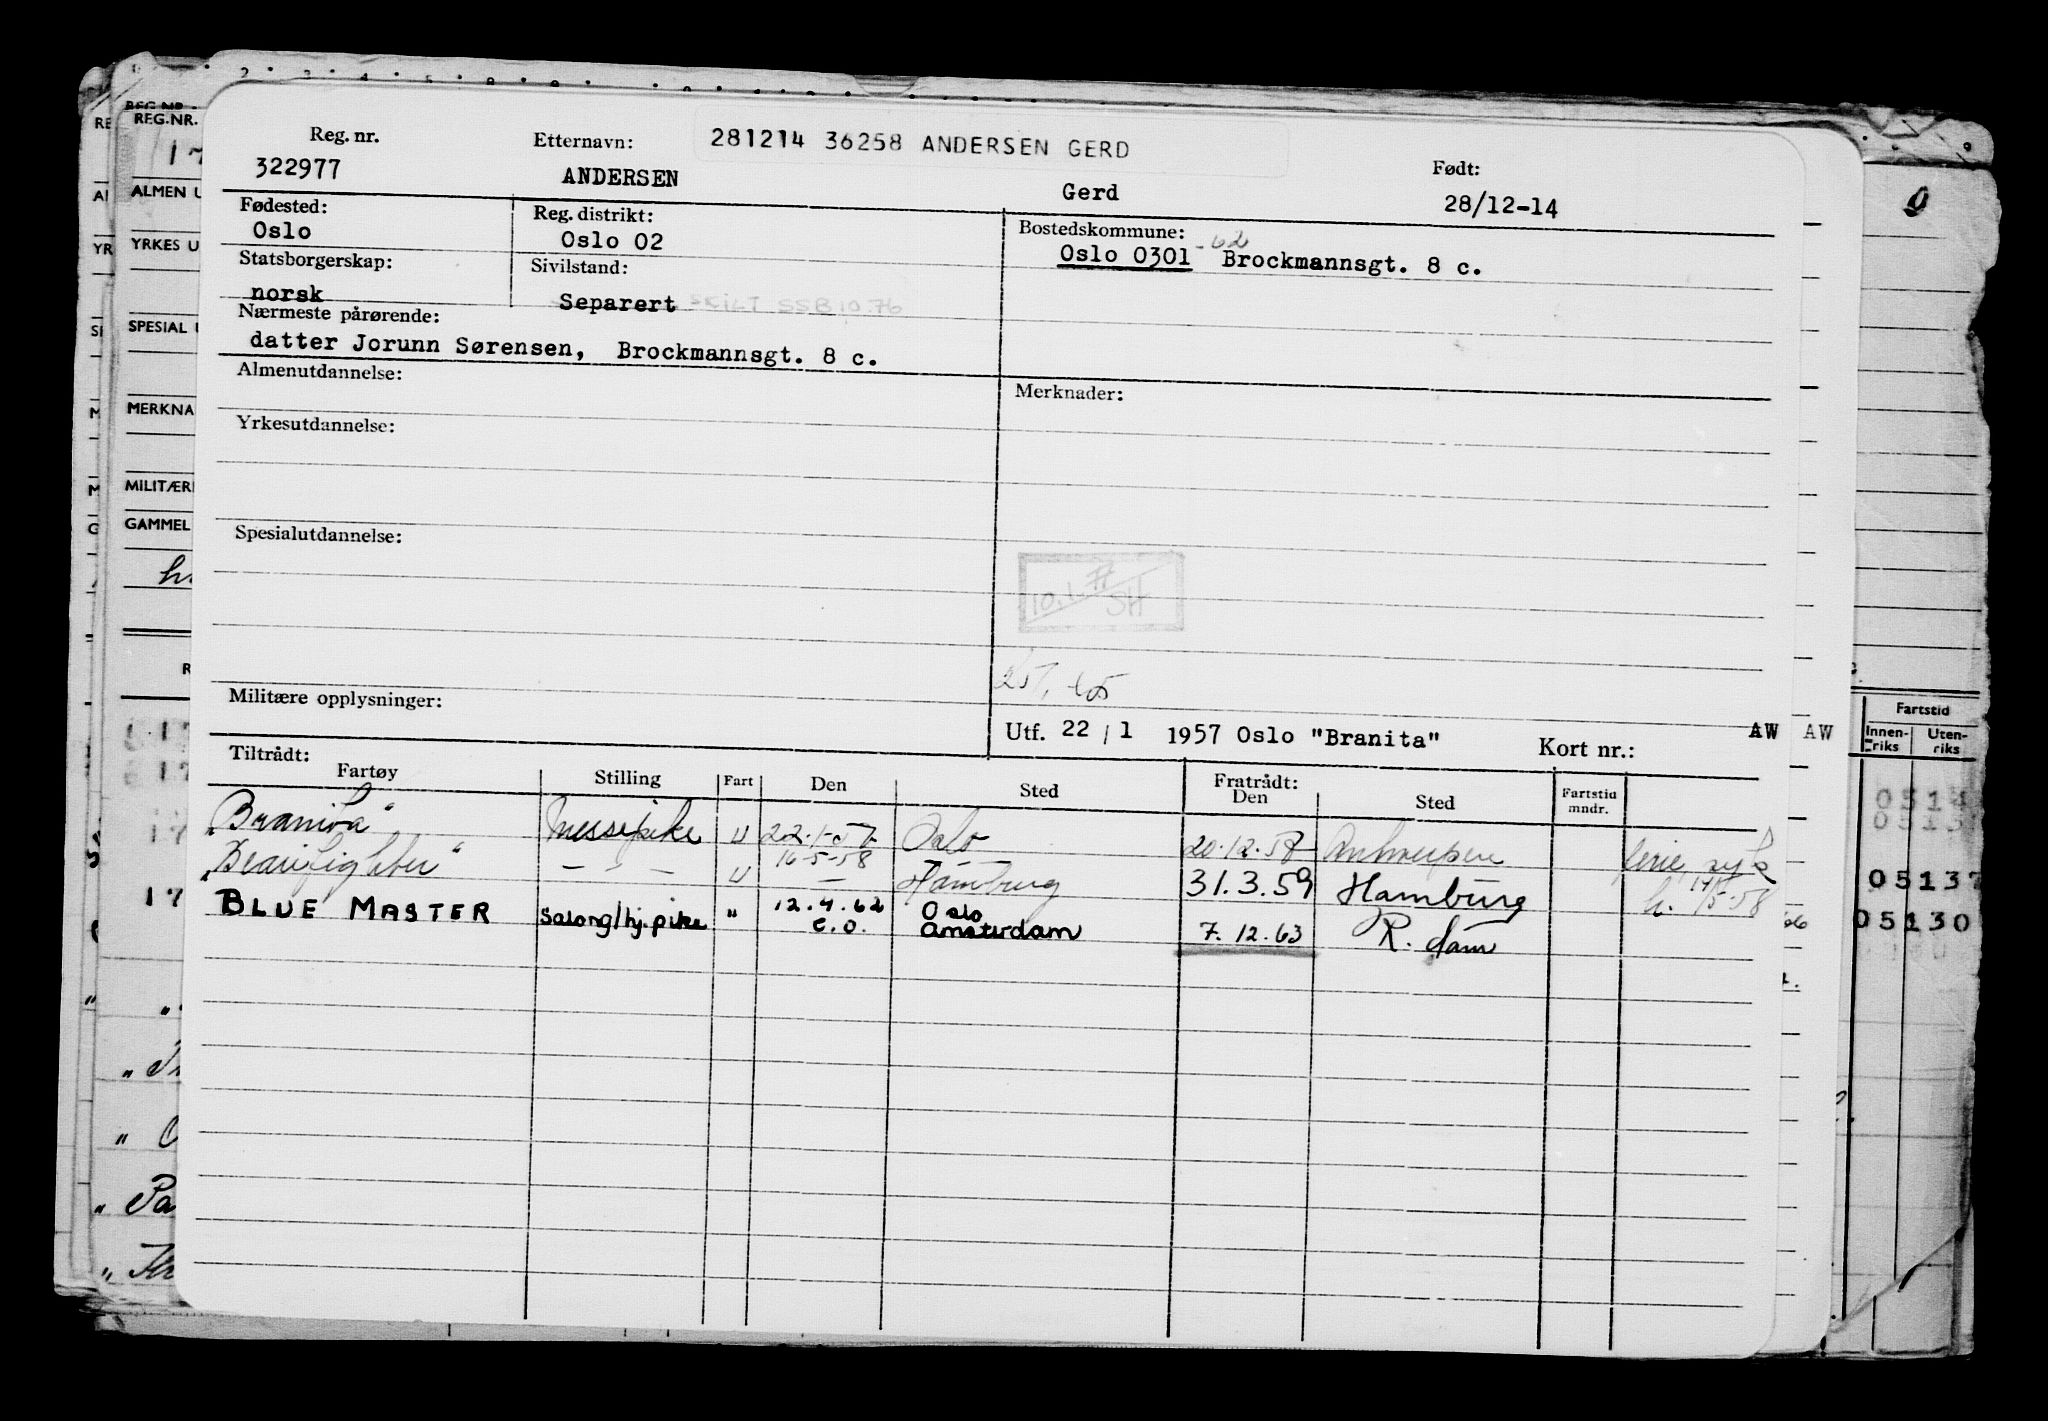 REG.NR.
ALMEN U
YRKES U
SPESIAL
MERKNA
MILITÆR
GAMMEL
Reg. nr.
322977
Etternavn:
281214 36258 ANDERSEN GERD
ANDERSEN
Gerd
Født:
28/12-14
Fødested:
Oslo
Reg. distrikt:
Oslo 02
Bostedskommune:
Oslo 0301 -62 Brockmannsgt. 8 c.
Statsborgerskap:
norsk
Sivilstand:
Separert SKILT SSB 10.76
Nærmeste pårørende:
datter Jorunn Sørensen, Brockmannsgt. 8 c.
Almenutdannelse:
Merknader:
Yrkesutdannelse:
Spesialutdannelse:
10.1. SH
Militære opplysninger:
Utf. 22 / 1 1957 Oslo "Branita"
Kort nr.:
AW AW
Tiltrådt:
Fartøy Stilling Fart Den Sted Fratrådt: Den Sted Fartstid mndr.
"Branita" Messepike U 22.1-57 Oslo 20.12.57 Antwerpen ferie, syk
"Bearifighter" — " — U 16-5-58 Hamburg 31.3.59 Hamburg h. 14/5-58
BLUE MASTER Salong/hj.pike " 12.4.62 Oslo 7.12.63 R.dam
e.o. Amsterdam
Fartstid
Innen-riks Uten-riks
05137
05130